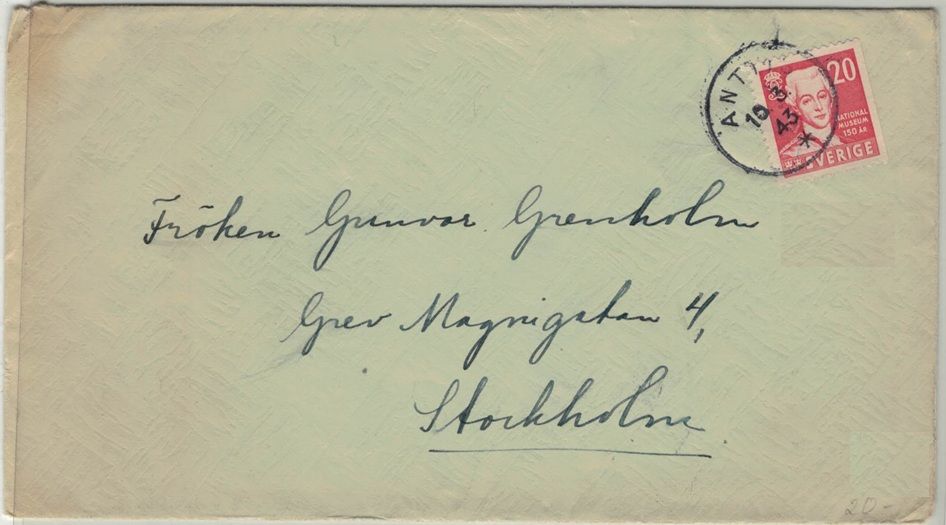 20
NATIONAL
MUSEUM
150 ÅR
SVERIGE
10 3
43
*
Fröken Gunvor Grenholm
Grev Magnigatan 4,
Stockholm
20-